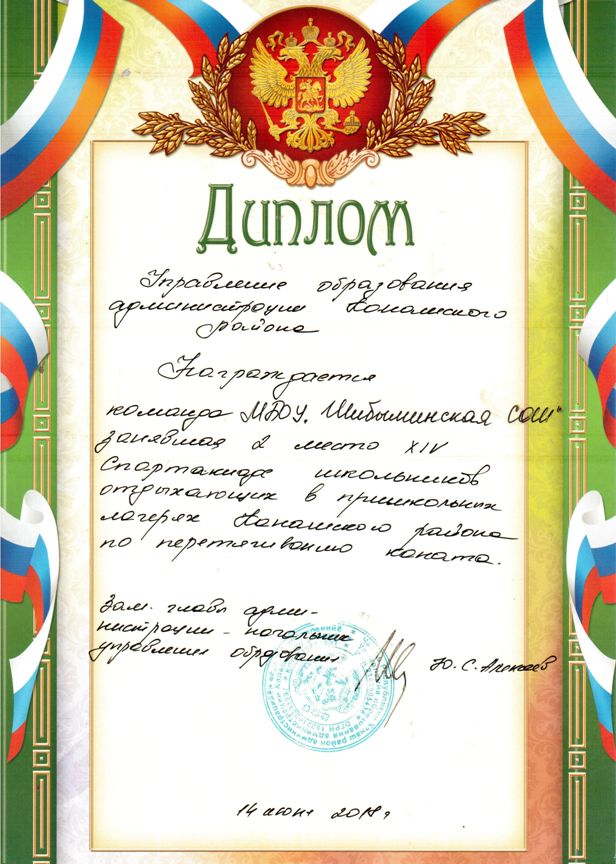 Диплом
Управление образования
администрации Канашского
района
Награждается
команда МБОУ "Шибылгинская СОШ"
занявшая 2 место XIV
Спартакиаде школьников
отдыхающих в пришкольных
лагерях Канашского района
по перетягиванию каната.
Зам. главы адми-
нистрации - начальник
управления образования
Ю. С.
14 июня